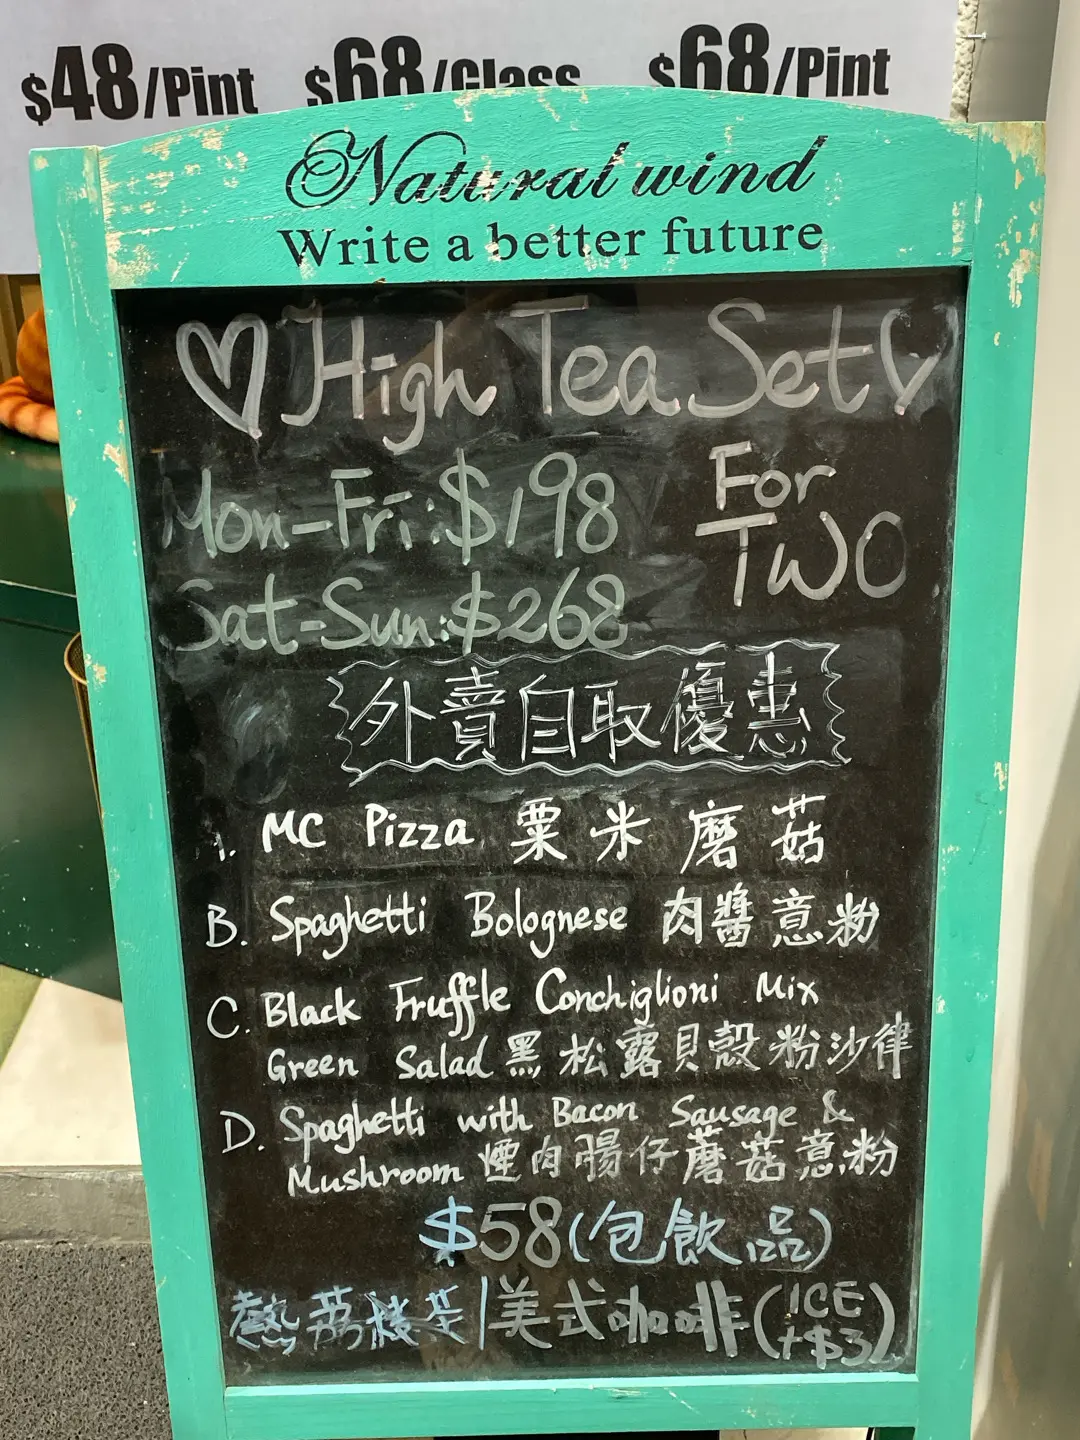 $48/Pint $68/Glass $68/Pint
Natural wind
Write a better future
High Tea Set
Mon-Fri:$198
For
TWO
Sat-Sun:$268
外賣自取優惠
1. MC Pizza 粟米磨菇
B. Spaghetti Bolognese 肉醬意粉
C. Black Fruffle Conchiglioni Mix
Green Salad 黑松露貝殼粉沙律
D. Spaghetti with Bacon Sausage &
Mushroom 煙肉腸仔蘑菇意粉
$58(包飲品)
熱荔枝茶|美式咖啡(ICE
+$3)